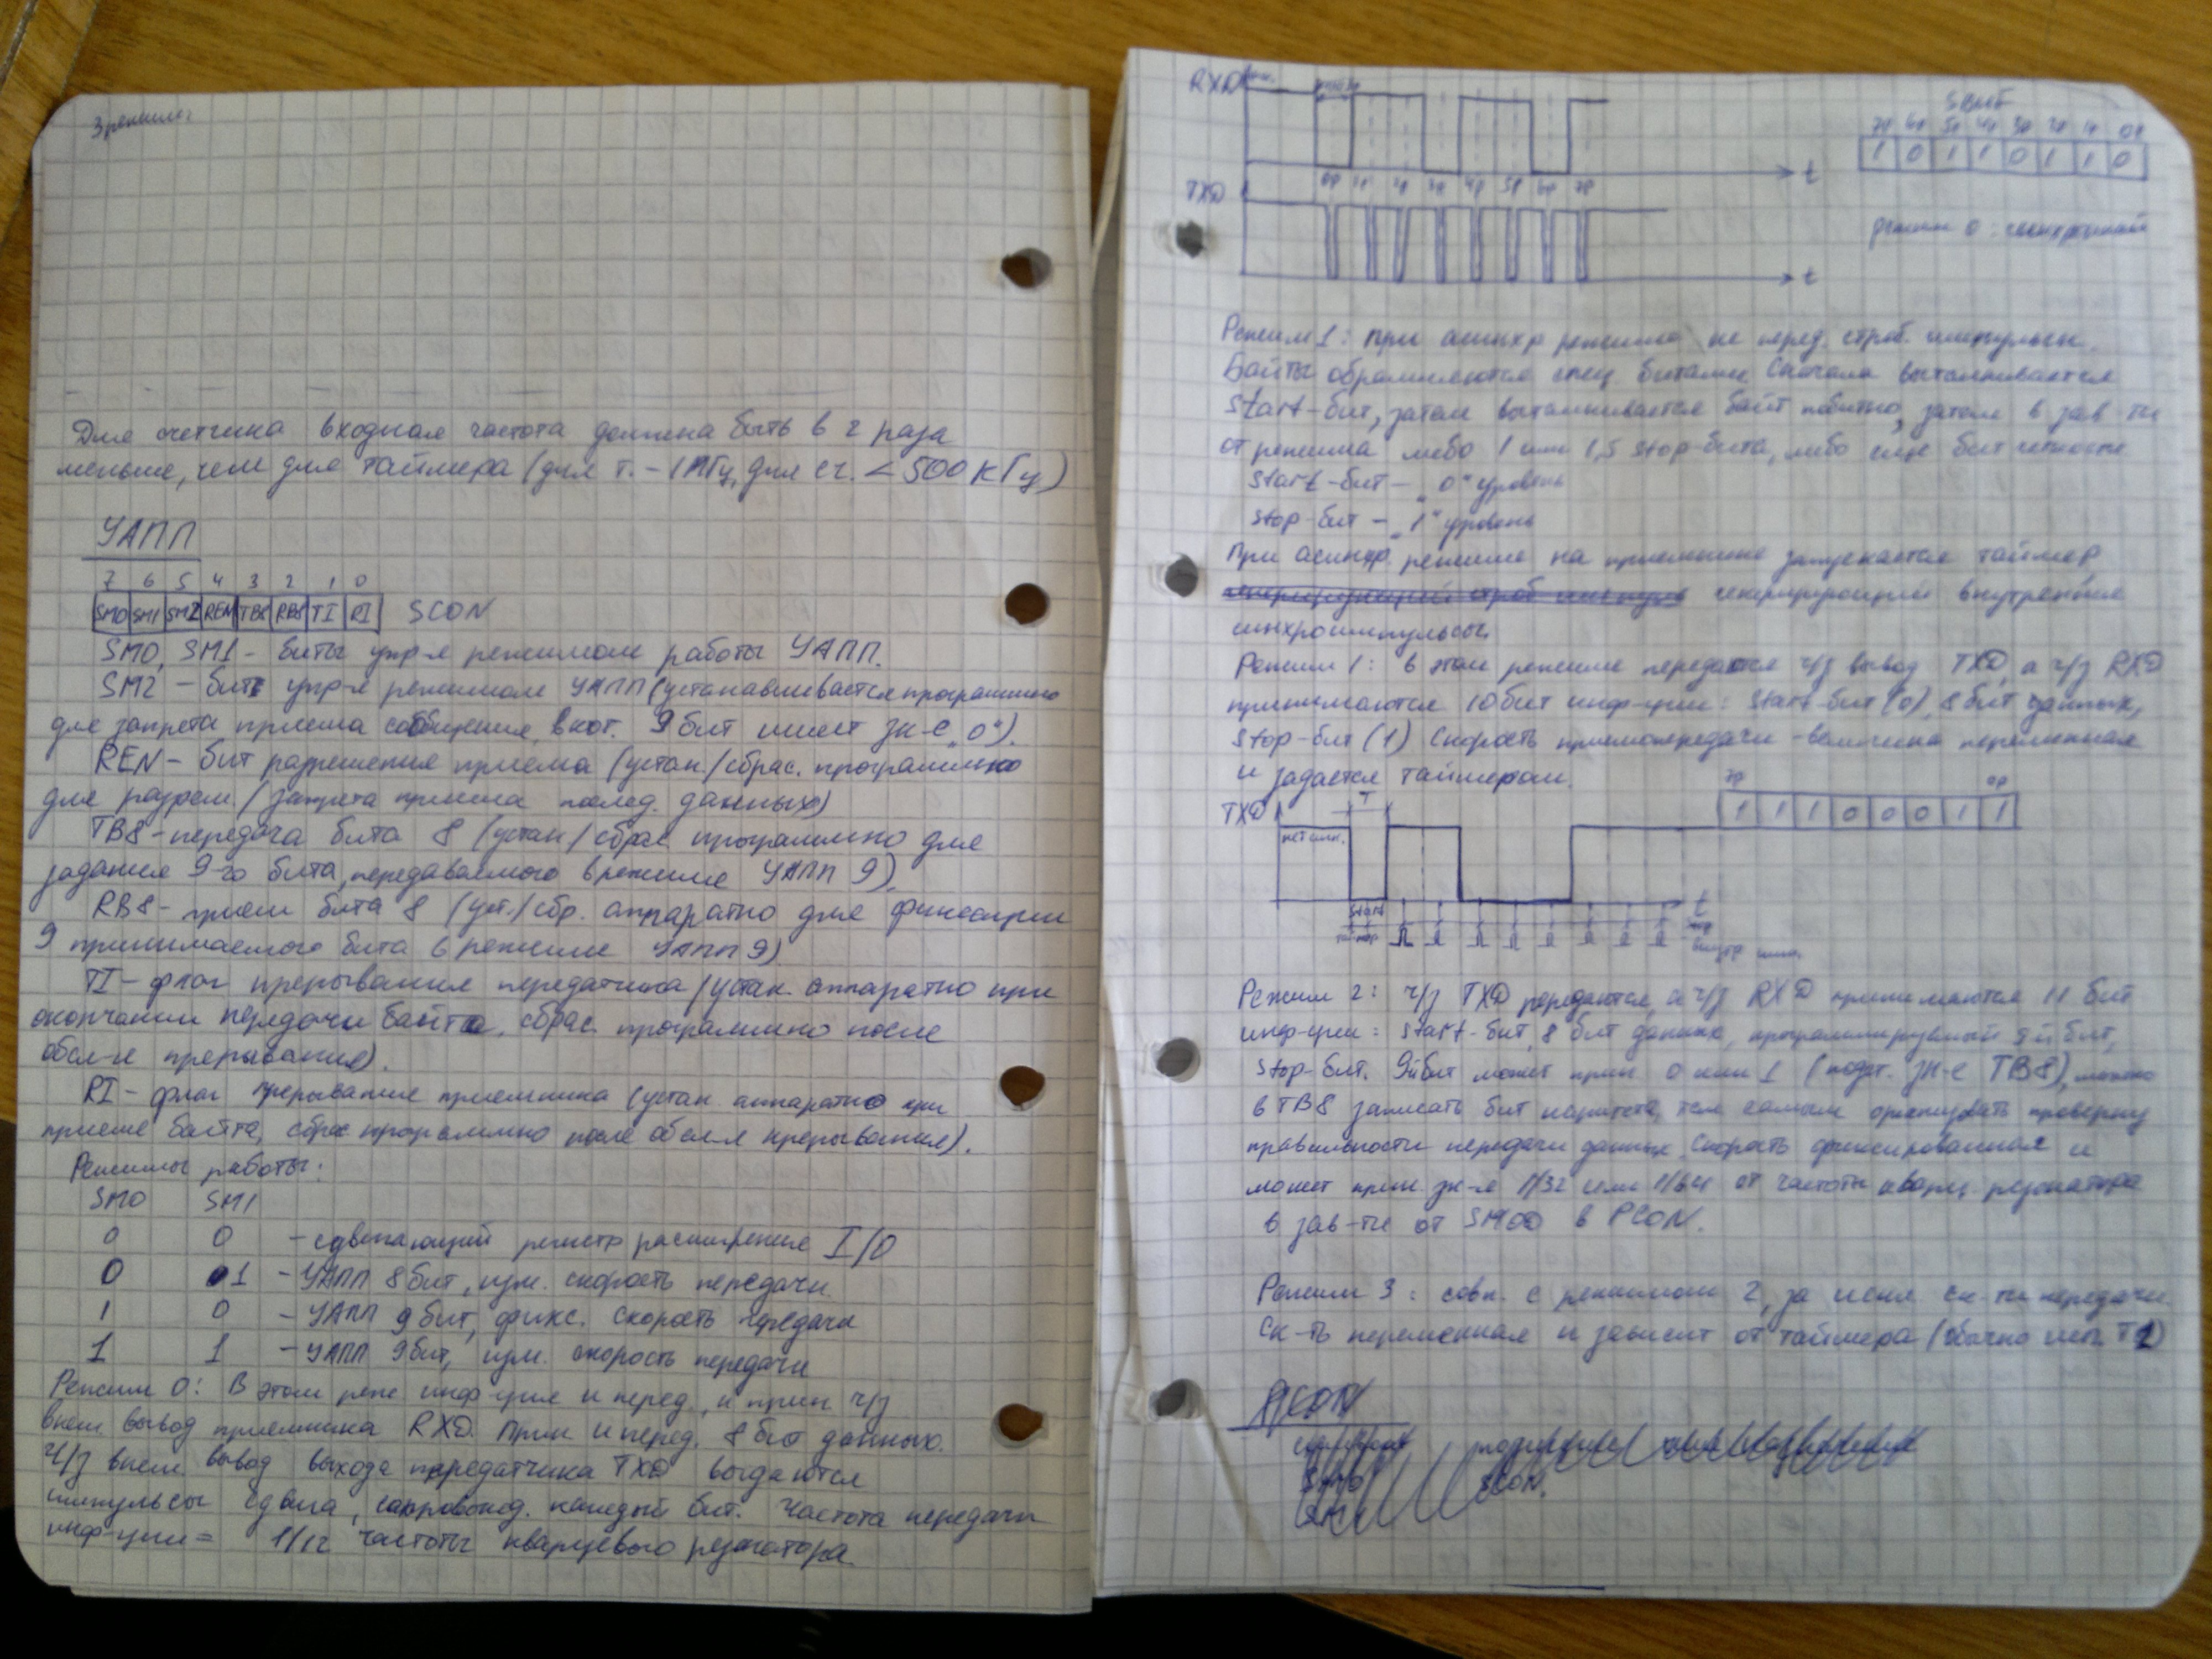 3 режим:
Для счетчика входная частота должна быть в 2 раза
меньше, чем для таймера (для т. - 1МГц, для сч. < 500 кГц)
УАПП
7 6 5 4 3 2 1 0
SM0 SM1 SM2 REN TB8 RB8 TI RI SCON
SM0, SM1 - биты упр-я режимом работы УАПП.
SM2 - бит упр-я режимом УАПП (устанавливается программно
для запрета приема сообщения, в кот. 9 бит имеет зн-е „0").
REN - бит разрешения приема (устан./сброс. программно
для разреш./запрета приема послед. данных)
TB8 - передача бита 8 (устан/сброс программно для
задания 9-го бита, передаваемого в режиме УАПП 9).
RB8 - прием бита 8 (уст./сбр. аппаратно для фиксации
9 принимаемого бита в режиме УАПП 9)
TI - флаг прерывания передатчика (устан. аппаратно при
окончании передачи байта, сброс. программно после
обсл-я прерывания).
RI - флаг прерывания приемника (устан аппаратно при
приеме байта, сброс программно после обсл-я прерывания).
Режимы работы:
SM0 SM1
0 0 - сдвигающий регистр расширения I/O
0 1 - УАПП 8 бит, изм. скорость передачи.
1 0 - УАПП 9 бит, фикс. скорость передачи
1 1 - УАПП 9 бит, изм. скорость передачи
Режим 0: В этом реж инф-ция и перед., и прин ч/з
внеш. вывод приемника RXD. Прин и перед. 8 бит данных.
Ч/з внеш. вывод выхода передатчика TXD выдаются
импульсы сдвига, сопровожд. каждый бит. Частота передачи
инф-ции = 1/12 частоты кварцевого резонатора.
RXD
t
SBUF
7р 6р 5р 4р 3р 2р 1р 0р
1 0 1 1 0 1 1 0
0р 1р 2р 3р 4р 5р 6р 7р
TXD
t
режим 0: синхронный
Режим 1: при асинхр режиме не перед. строб. импульсы.
Байты обрамляются спец. битами. Сначала выталкивается
Start-бит, затем выталкивается байт побитно, затем в зав-ти
от режима либо 1 или 1,5 stop-бита, либо еще бит четности
Start-бит - „0" уровень
Stop-бит - „1" уровень
При асинхр. режиме на приемнике запускается таймер
генерирующий внутренние
синхроимпульсы.
Режим 1: в этом режиме передается ч/з вывод TXD, а ч/з RXD
принимаются 10 бит инф-ции: Start-бит (0), 8 бит данных,
Stop-бит (1) Скорость приемопередачи - величина переменная
и задается таймером.
7р 0р
1 1 1 0 0 0 1 1
TXD
T
нет инф.
t
start
таймер
внутр имп.
Режим 2: ч/з TXD передаются, а ч/з RXD принимаются 11 бит
инф-ции: start-бит, 8 бит данных, программируемый 9й бит,
Stop-бит. 9й бит может прин. 0 или 1 (подст. зн-е TB8), можно
в TB8 записать бит паритета, тем самым организовать проверку
правильности передачи данных. Скорость фиксированная и
может прин. зн-я 1/32 или 1/64 от частоты кварц. резонатора
в зав-ти от SMOD в PCON.
Режим 3: совп. с режимом 2, за искл. ск-ти передачи.
Ск-ть переменная и зависит от таймера (обычно исп. T1)
PCON
SCON.